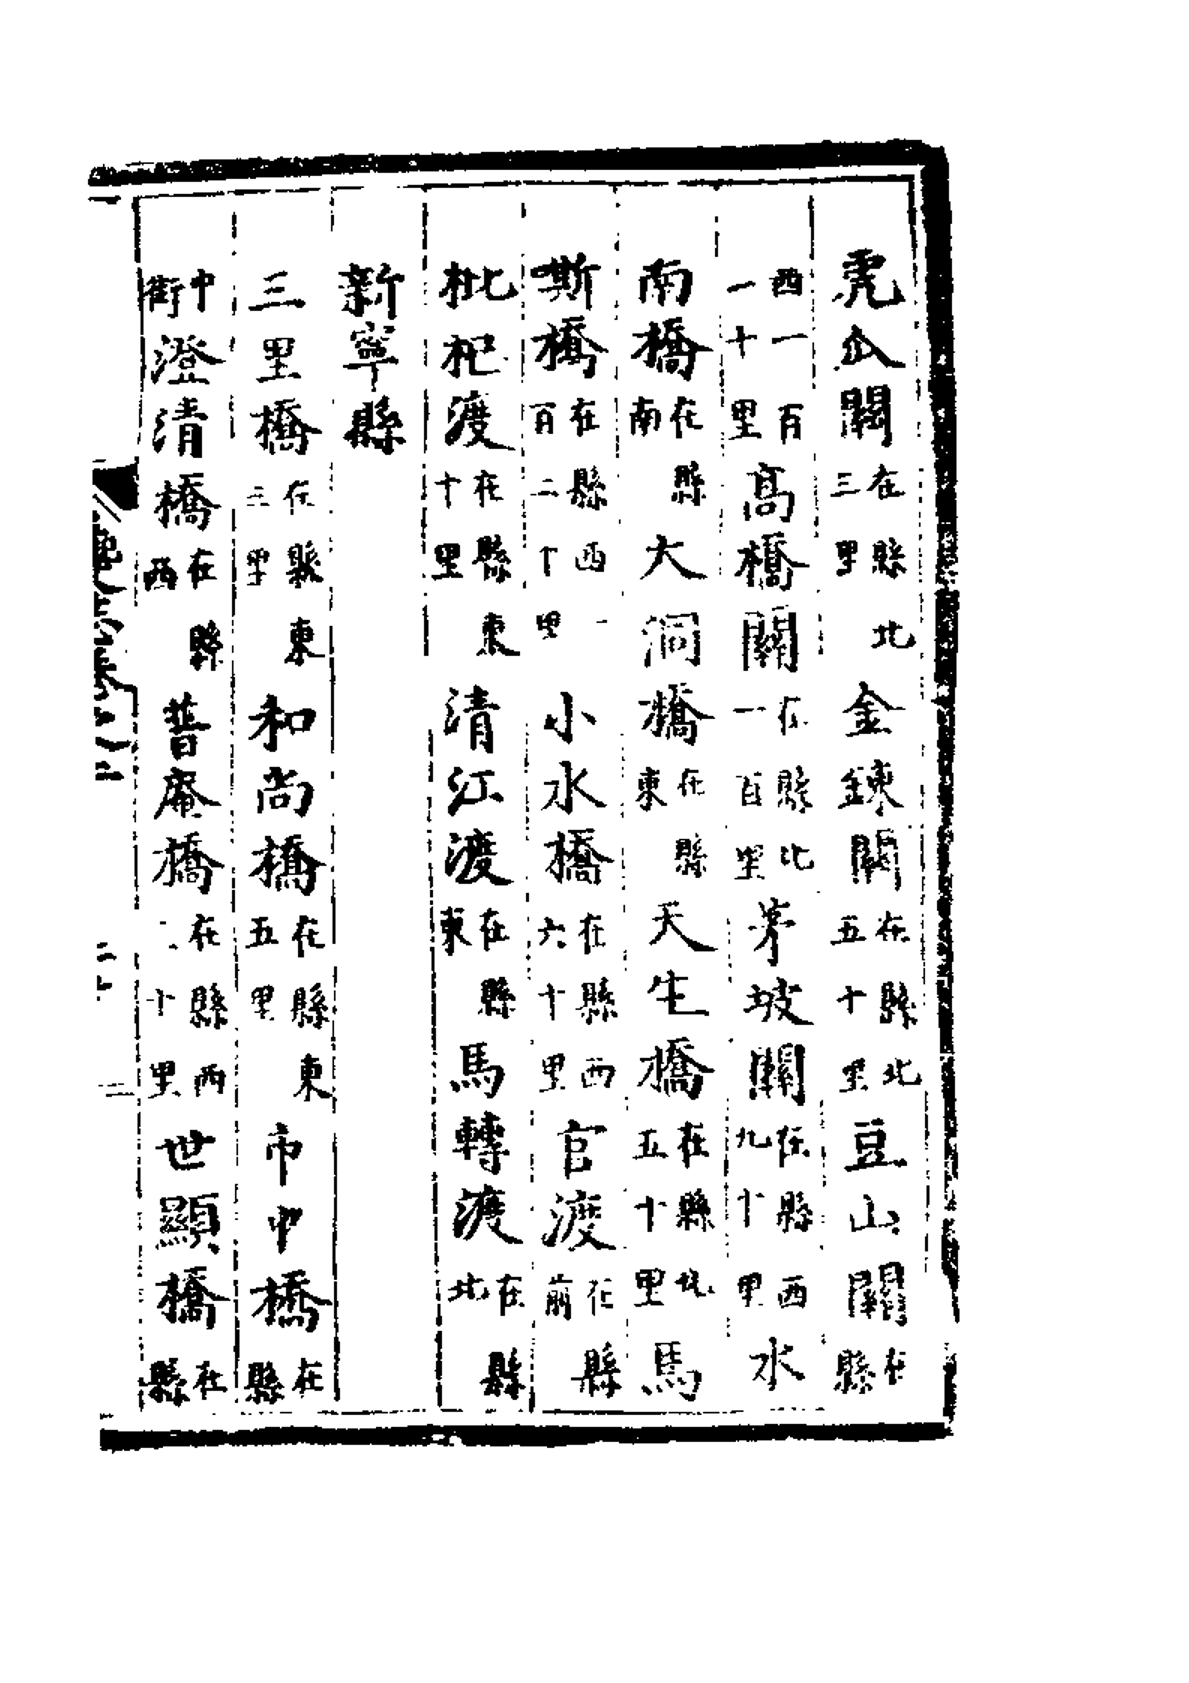 虎關在縣北三里金鍊關在縣北五十里豆山關在縣
西一百一十里高橋關在縣北一百里茅坡關在縣西九十里水
南橋在縣南大洞橋在縣東天生橋在縣北五十里馬
嘶橋在縣西一百二十里小水橋在縣西六十里官渡在縣前
枇杷渡在縣東十里清江渡在縣東馬轉渡在縣北
新寧縣
三里橋在縣東三里和尚橋在縣東五里市中橋在縣
中街澄清橋在縣西普庵橋在縣西二十里世顯橋在縣